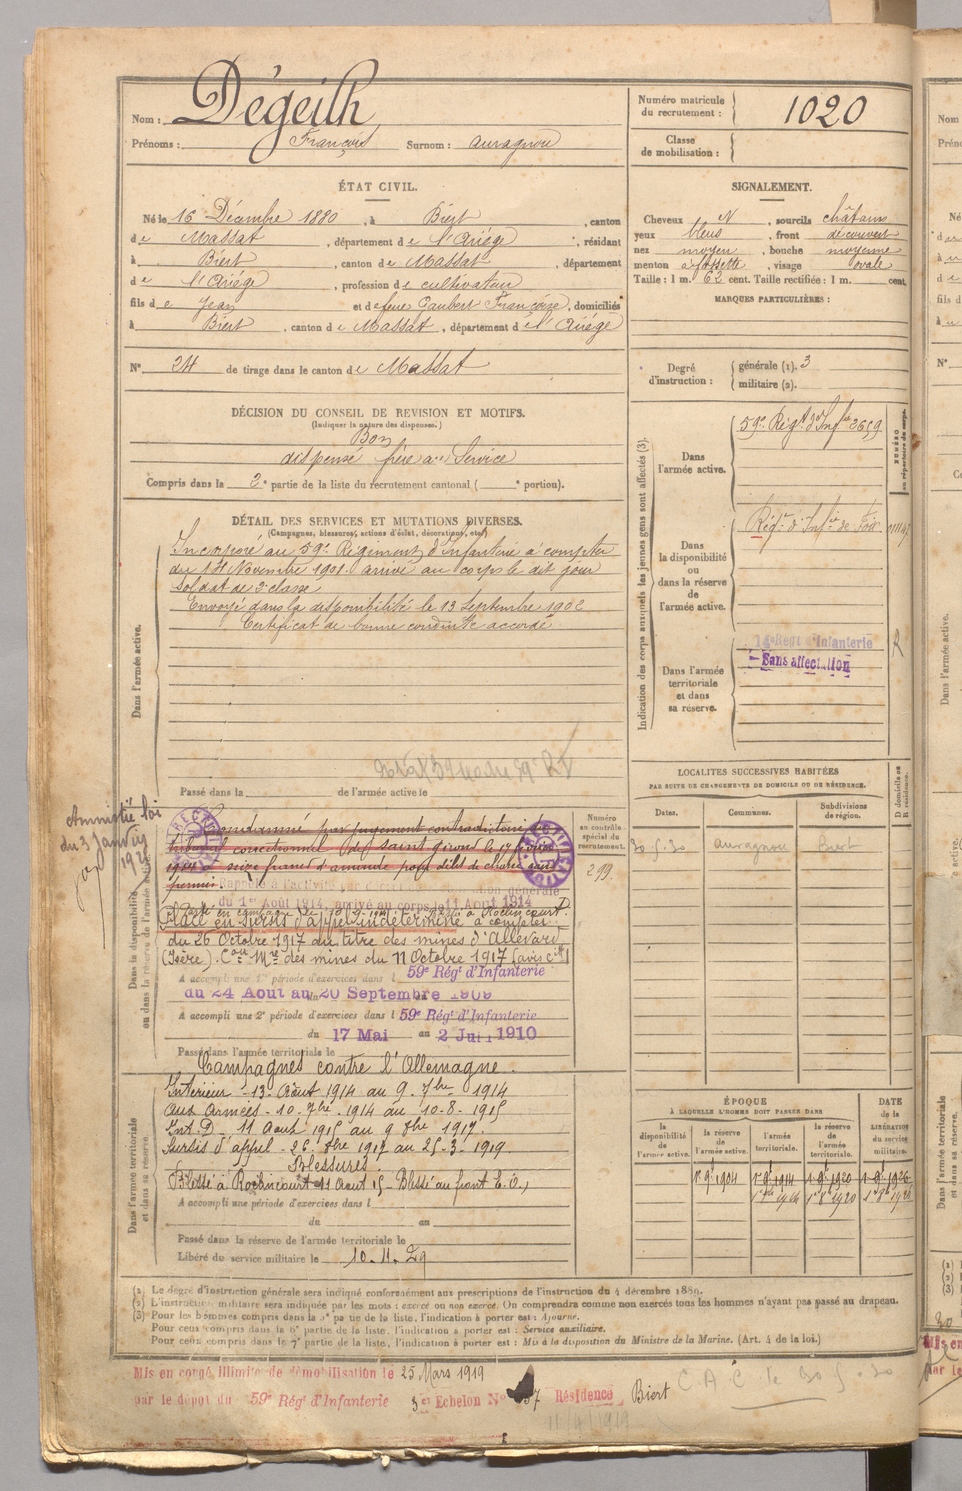 Nom : Dégeilh
Prénoms : François Surnom : auragnou
Numéro matricule du recrutement : 1020
Classe de mobilisation :
ÉTAT CIVIL.
Né le 16 Décembre 1880, à Biert, canton
de Massat, département de l'Ariège, résidant
à Biert, canton de Massat, département
de l'Ariège, profession de cultivateur
fils de Jean et de feue Gaubert Françoise, domiciliés
à Biert, canton de Massat, département de l'Ariège
N° 24 de tirage dans le canton de Massat
SIGNALEMENT.
Cheveux N, sourcils châtains
yeux bleus, front découvert
nez moyen, bouche moyenne
menton à fossette, visage ovale
Taille : 1 m. 62 cent. Taille rectifiée : 1 m. cent.
MARQUES PARTICULIÈRES :
Degré d'instruction : générale (1). 3
militaire (2).
DÉCISION DU CONSEIL DE REVISION ET MOTIFS.
(Indiquer la nature des dispenses.)
Bon
dispensé frère au Service
Compris dans la 2e partie de la liste du recrutement cantonal ( e portion).
DÉTAIL DES SERVICES ET MUTATIONS DIVERSES.
(Campagnes, blessures, actions d'éclat, décorations, etc.)
Dans l'armée active.
Incorporé au 59e Régiment d'Infanterie à compter
du 14 Novembre 1901. arrivé au corps le dit jour
soldat de 2e classe
Envoyé dans la disponibilité le 13 Septembre 1902
Certificat de bonne conduite accordé.
Passé dans la de l'armée active le
Indication des corps auxquels les jeunes gens sont affectés (3).
NUMÉRO au répertoire du corps.
Dans l'armée active.
59e Régt d'Infie 2659
Dans la disponibilité ou dans la réserve de l'armée active.
Régt d'Infie de Foix
Dans l'armée territoriale et dans sa réserve.
Regt d'Infanterie
Sans affectation
Amnistié loi
du 3 Janvier
Dans la disponibilité ou dans la réserve de l'armée active
Condamné par jugement contradictoire du
tribunal correctionnel de Saint Girons le 17
seize francs d'amende pour délit de chasse sans
permis
RECTIFICATION
Rappelé à l'activité générale
du 1er Août 1914, arrivé au corps le 11 Août 1914
Placé en sursis d'appel indéterminé à compter
du 26 Octobre 1917 au titre des mines d'Allevard
(Isère). des mines du 11 Octobre 1917
Numéro au contrôle spécial du recrutement.
299.
A accompli une 1re période d'exercices dans l 59e Régt d'Infanterie
du 24 Aout au 20 Septembre 1909
A accompli une 2e période d'exercices dans l 59e Régt d'Infanterie
du 17 Mai au 2 Juin 1910
Passé dans l'armée territoriale le
Campagnes contre l'Allemagne.
Dans l'armée territoriale et dans sa réserve.
Intérieur - 13. Août 1914 au 9. 7bre 1914
Aux Armées - 10. 7bre. 1914 au 10-8-1915
Int. D - 11 Aout 1915 au 9 8bre 1917.
Sursis d'appel - 26. 8bre 1917 au 25-3-1919
Blessures.
Blessé à Roclincourt 11 Aout 15 -
A accompli une période d'exercices dans l
du au
Passé dans la réserve de l'armée territoriale le
Libéré du service militaire le 10.11.29
LOCALITÉS SUCCESSIVES HABITÉES
PAR SUITE DE CHANGEMENTS DE DOMICILE OU DE RÉSIDENCE.
Dates. Communes. Subdivisions de région. D domicile ou R résidence.
30.5.30 Auragnou Biert
ÉPOQUE
À LAQUELLE L'HOMME DOIT PASSER DANS
la disponibilité de l'armée active. la réserve de l'armée active. l'armée territoriale. la réserve de l'armée territoriale.
DATE de la LIBÉRATION du service militaire.
1r 9bre 1904 1r 9bre 1914 1r 9bre 1920 1r 9bre 1926
(1) Le degré d'instruction générale sera indiqué conformément aux prescriptions de l'instruction du 4 décembre 1889.
(2) L'instruction militaire sera indiquée par les mots : exercé ou non exercé. On comprendra comme non exercés tous les hommes n'ayant pas passé au drapeau.
(3) Pour les hommes compris dans la 5e partie de la liste, l'indication à porter est : Ajourné.
Pour ceux compris dans la 6e partie de la liste, l'indication à porter est : Service auxiliaire.
Pour ceux compris dans la 7e partie de la liste, l'indication à porter est : Mis à la disposition du Ministre de la Marine. (Art. 4 de la loi.)
Mis en congé illimité de démobilisation le 25 Mars 1919
par le dépôt du 59e Régt d'Infanterie 3e Echelon N° Résidence Biert